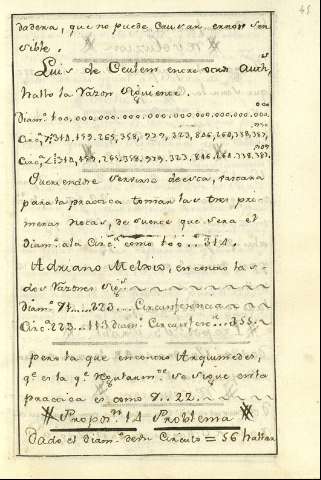 45
dadera, que no puede causar error sen
sible.
Luis de Ceulem entre otros
hallo la razon siguiente.
Diam.º 100.000.000.000.000.000.000.000.000
Circ.ª 314.159.265.358.979.323.846.260.338.387
Circ.ª 314.159.265.358.979.323.846.260.338.387
Queriendose servirse de esta, bastara
para la practica tomar las tres pri-
meras notas, de suerte que sera el
Diam.º ala Circ.ª como 100..314.
Adriano Mecio, encontro las
dos razones sig.s
Diam.º 71....223... Circunferencia
Circ.ª 223..113 Diam.º Circunfer.ª ...355
pero la que encontro Arquimedes,
q.e es la q.e regularm.te se sigue en la
practica es como 7..22.
Propos.n 14 Problema
Dado el Diam.º de un Circulo = 56 hallar